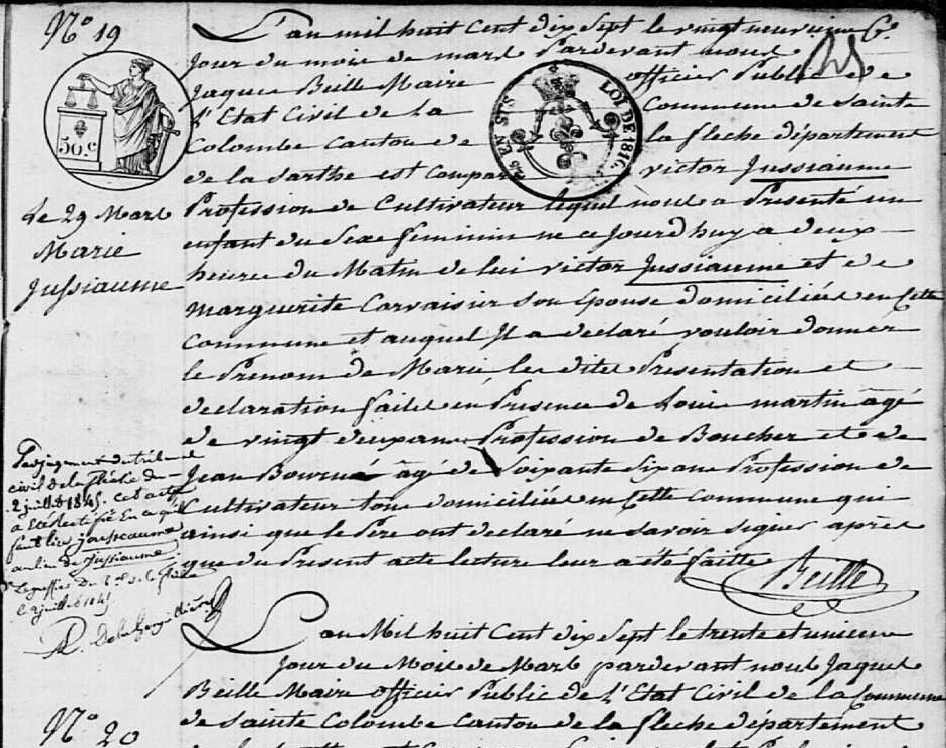 N° 19
50. c
EN SUS
LOI DE 1816
Le 29 Mars
Marie
Jussiaume
L'an mil huit Cent dix Sept le vingt neuvieme
Jour du mois de mars Pardevant nous
Jaques Beille Maire officier Public de
l'Etat Civil de La Commune de Sainte
Colombe Canton de la fleche département
de la Sarthe est Compar victor Jussiaume
Profession de Cultivateur lequel nous a Presenté un
enfant du Sexe feminin ne ce jourd'huy a deux
heures du Matin de lui victor Jussiaume et de
marguerite Corvaisier Son epouse domiciliés en Cette
Commune et auquel Il a declaré vouloir donner
le Prenom de Marie les dites Presentation et
declaration faites en Presence de Louis martin âgé
de vingt deux ans Profession de Boucher et de
Jean Bourné âgé de Soixante Six ans Profession de
Cultivateur tous domiciliés en Cette commune qui
ainsi que le Pere ont declaré ne Savoir Signer après
que du Present acte lecture leur a été faitte
Beille
Par jugement du tribunal
civil de la flèche du
2 juillet 1845. cet acte
a été rectifié En ce qu'il
faut lire jousseaume
au lieu de Jussiaume.
Le greffier du t. c. de la flèche
le 2 juillet 1845
L'an Mil huit Cent dix Sept le trente et unieme
Jour du Mois de Mars pardevant nous Jaques
Beille Maire officier Public de l'Etat Civil de la Commune
de Sainte Colombe Canton de la fleche département
N° 20